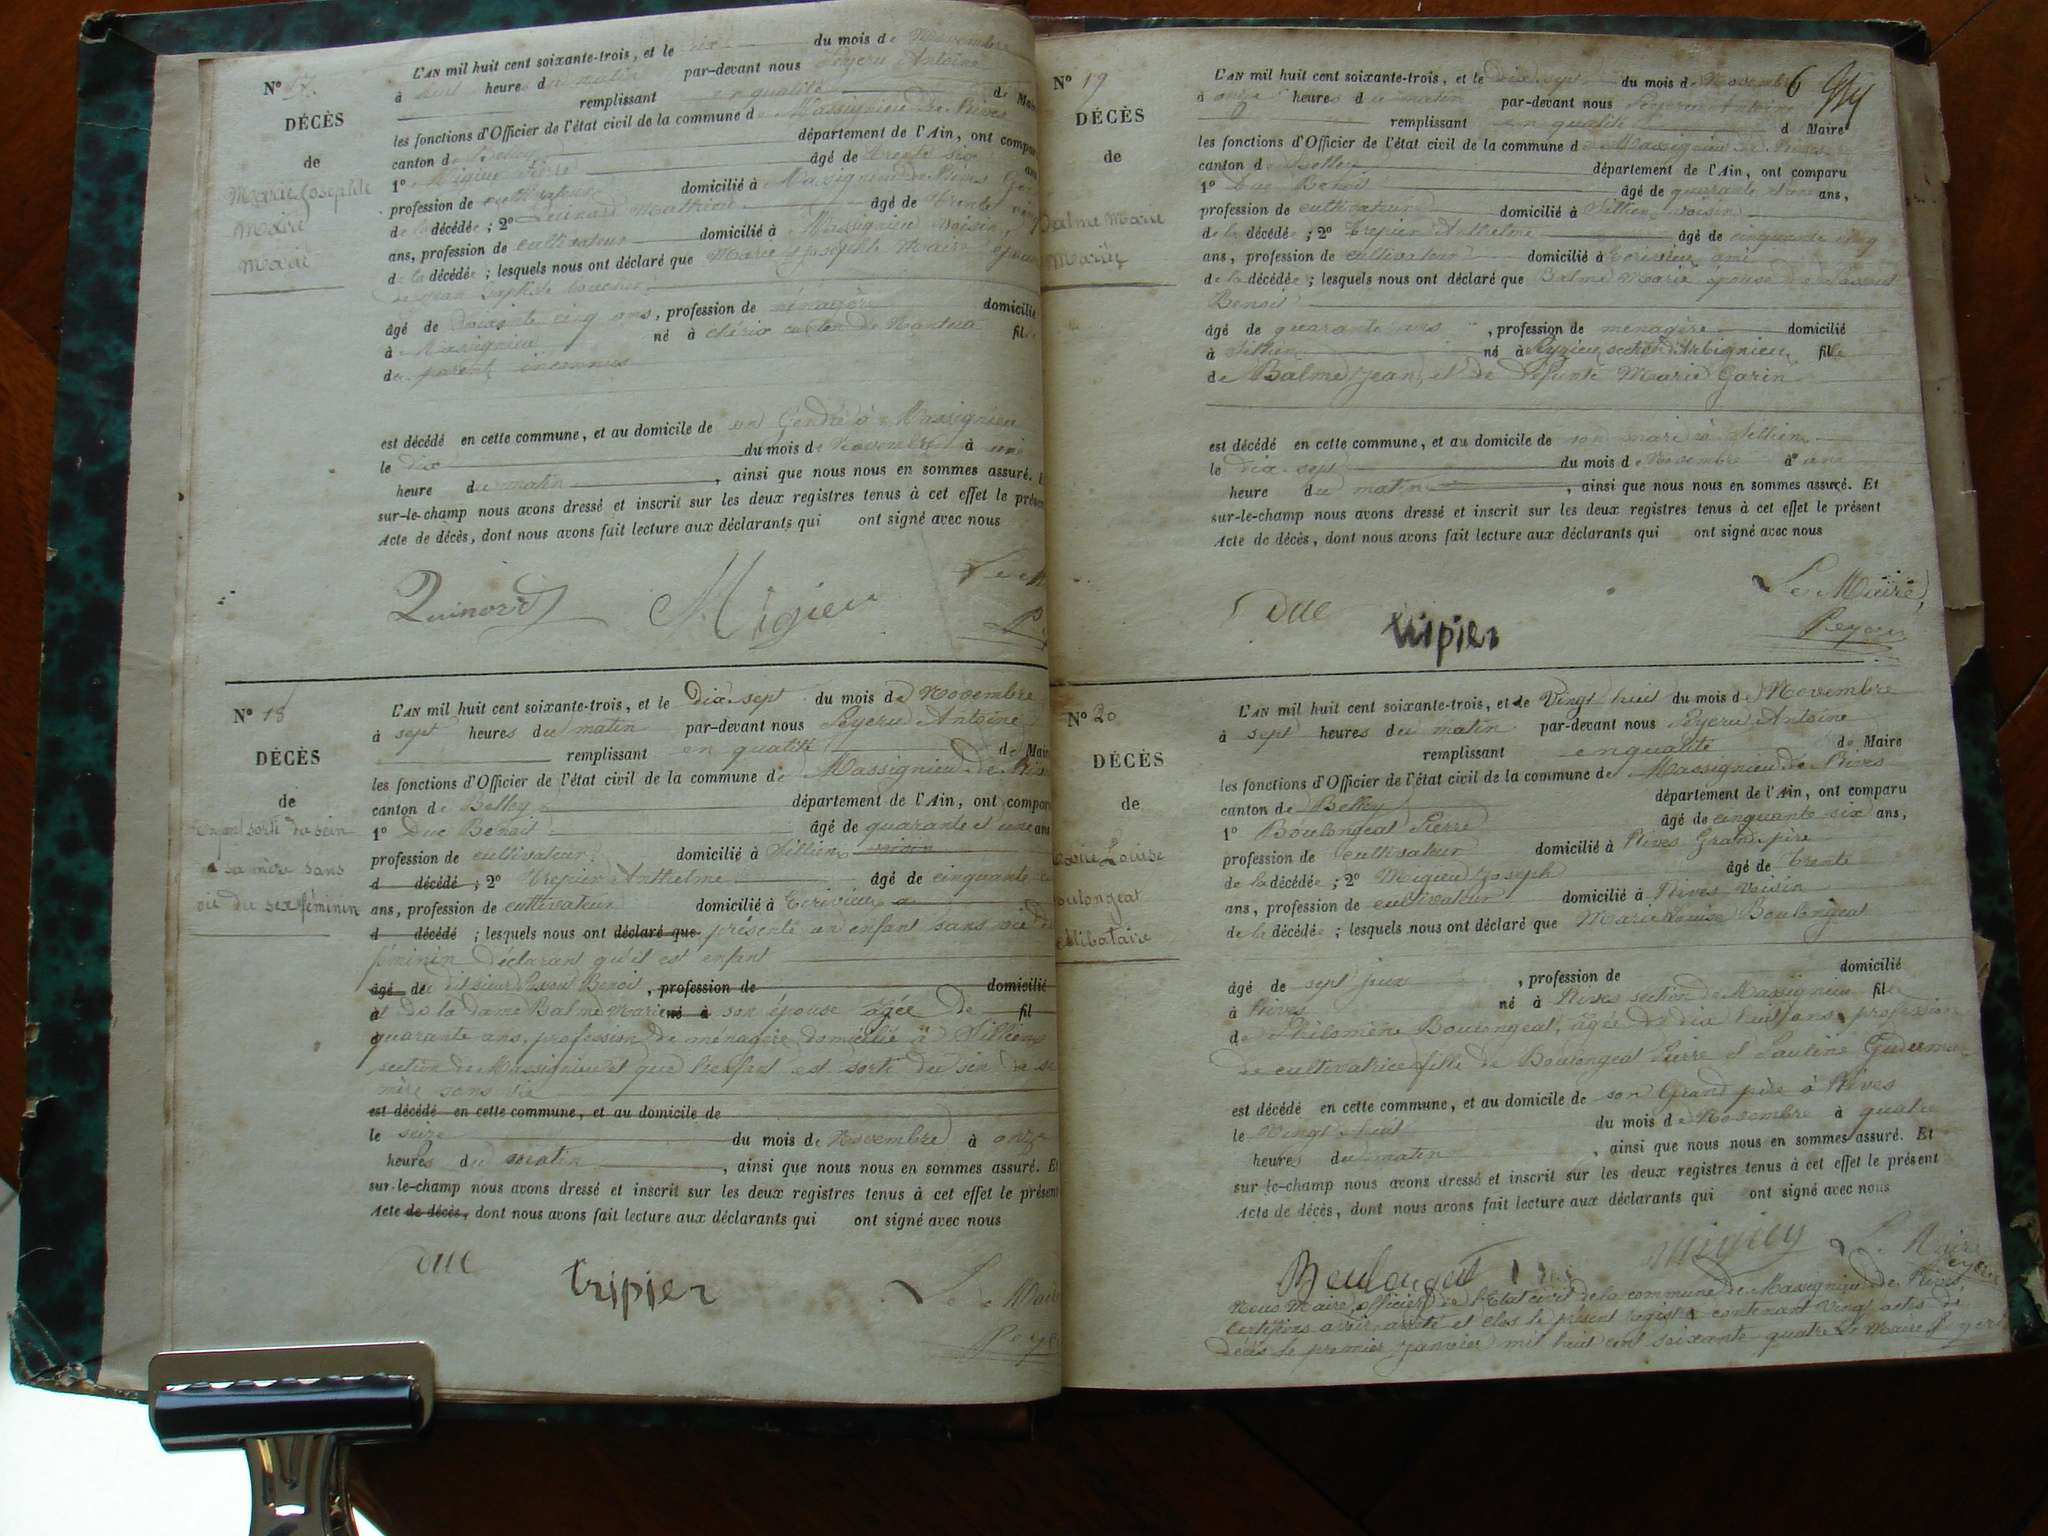 N° 17.
DÉCÈS
de
Marie Josephte
Maire
Marié
L'AN mil huit cent soixante-trois, et le dix du mois de Novembre
à huit heures du matin par-devant nous Peyeru Antoine
remplissant en qualité de Maire
les fonctions d'Officier de l'état civil de la commune de Massignieu de Rives
canton de Belley département de l'Ain, ont comparu
1° Migieu Pierre âgé de trente six ans
profession de cultivateur domicilié à Massignieu de Rives
de la décédée ; 2° Mathieu âgé de trente cinq
ans, profession de cultivateur domicilié à Massignieu voisin
de la décédée ; lesquels nous ont déclaré que Marie Josephte Maire épouse
de Jean Baptiste
âgé de soixante cinq ans, profession de ménagère domicilié
à Massignieu né à canton de Nantua fil
de parent inconnus
est décédé en cette commune, et au domicile de un Gendre à Massignieu
le dix du mois de Novembre à une
heure du matin, ainsi que nous nous en sommes assuré. E
sur-le-champ nous avons dressé et inscrit sur les deux registres tenus à cet effet le présen
Acte de décès, dont nous avons fait lecture aux déclarants qui ont signé avec nous
Migieu
N° 18
DÉCÈS
de
Enfant sorti du sein
sa mère sans
vie du sexe féminin
L'AN mil huit cent soixante-trois, et le Dix sept du mois de Novembre
à sept heures du matin par-devant nous Peyeru Antoine
remplissant en qualité de Maire
les fonctions d'Officier de l'état civil de la commune de Massignieu de Rives
canton de Belley département de l'Ain, ont comparu
1° Duc Benoit âgé de quarante et une ans
profession de cultivateur domicilié à Sillien voisin
d décédé ; 2° Trepier Anthelme âgé de cinquante
ans, profession de cultivateur domicilié à Ecrivieu
d décédé ; lesquels nous ont déclaré que présenté un enfant sans vie du
féminin déclarant qu'il est enfant
âgé de du dit sieur Benoit, profession de domicilié
à et de la dame Balme Marie né à son épouse âgée de fil
quarante ans, profession de ménagère domicilié à Sillien
section de Massignieu et que l'enfant est sorti du sein de sa
mère sans vie
est décédé en cette commune, et au domicile de
le seize du mois de Novembre à onze
heures du matin, ainsi que nous nous en sommes assuré. Et
sur-le-champ nous avons dressé et inscrit sur les deux registres tenus à cet effet le présent
Acte de décès, dont nous avons fait lecture aux déclarants qui ont signé avec nous
Duc
tripier
Le Maire
Peye
N° 19
DÉCÈS
de
Balme Marie
Mariée
6
L'AN mil huit cent soixante-trois, et le dix sept du mois de Novembre
à onze heures du matin par-devant nous Peyeru Antoine
remplissant en qualité d Maire
les fonctions d'Officier de l'état civil de la commune de Massignieu de Rives
canton de Belley département de l'Ain, ont comparu
1° Duc Benoit âgé de quarante et une ans,
profession de cultivateur domicilié à Sillien voisin
de la décédée ; 2° Trepier Anthelme âgé de cinquante cinq
ans, profession de cultivateur domicilié à Ecrivieu ami
de la décédée ; lesquels nous ont déclaré que Balme Marie épouse de
Benoit
âgé de quarante ans, profession de ménagère domicilié
à Sillien né à Peyzieu section d'Arbignieu fille
de Balme Jean, et de défunte Marie Garin
est décédé en cette commune, et au domicile de son mari à Sillien
le dix sept du mois de Novembre à une
heure du matin, ainsi que nous nous en sommes assuré. Et
sur-le-champ nous avons dressé et inscrit sur les deux registres tenus à cet effet le présent
Acte de décès, dont nous avons fait lecture aux déclarants qui ont signé avec nous
Duc
tripier
Le Maire,
Peyeru
N° 20
DÉCÈS
de
Marie Louise
Boulongeat
célibataire
L'AN mil huit cent soixante-trois, et le Vingt huit du mois de Novembre
à sept heures du matin par-devant nous Peyeru Antoine
remplissant en qualité de Maire
les fonctions d'Officier de l'état civil de la commune de Massignieu de Rives
canton de Belley département de l'Ain, ont comparu
1° Boulongeat Pierre âgé de cinquante six ans,
profession de cultivateur domicilié à Rives Grand père
de la décédée ; 2° Migieu Joseph âgé de trente
ans, profession de cultivateur domicilié à Rives voisin
de la décédée ; lesquels nous ont déclaré que Marie Louise Boulongeat
âgé de sept jour, profession de domicilié
à Rives né à Rives section de Massignieu fille
de Philomène Boulongeat, âgée de dix huit ans, profession
de cultivatrice fille de Boulongeat Pierre et Pauline
est décédé en cette commune, et au domicile de son Grand père à Rives
le Vingt huit du mois de Novembre à quatre
heures du matin, ainsi que nous nous en sommes assuré. Et
sur-le-champ nous avons dressé et inscrit sur les deux registres tenus à cet effet le présent
Acte de décès, dont nous avons fait lecture aux déclarants qui ont signé avec nous
Le Maire
Peyeru
Nous Maire, officier de l'Etat civil de la commune de Massignieu de Rives
Certifions avoir arrêté et clos le présent registre contenant Vingt actes de
décès le premier janvier mil huit cent soixante quatre Le Maire Peyeru